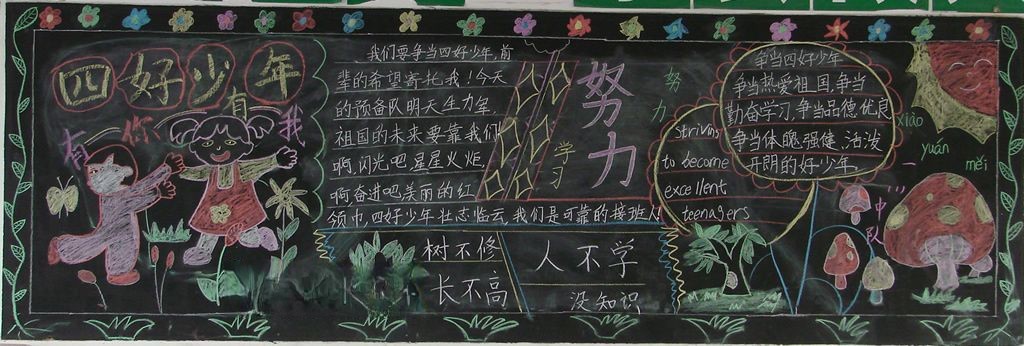 四好少年
有你有我
我们要争当四好少年,前
辈的希望寄托我!今天
的预备队明天生力军
祖国的未来要靠我们
啊,闪光吧星星火炬
啊奋进吧美丽的红
领巾,四好少年壮志临云,我们是可靠的接班人
学习
努力
努力
striving
to become
excellent
teenagers
争当四好少年
争当热爱祖国,争当
勤奋学习,争当品德优良
争当体魄强健、活泼
开朗的好少年。
xiào
yuán
měi
一
中队
树不修
长不高
人不学
没知识